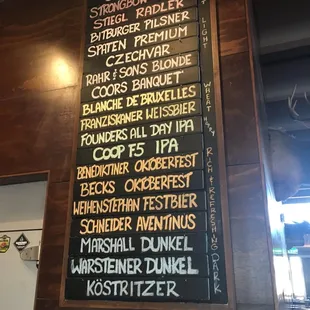 STRONGBOW
STIEGL RADLER
BITBURGER PILSNER
SPATEN PREMIUM
CZECHVAR
RAHR & SONS BLONDE
COORS BANQUET
BLANCHE DE BRUXELLES
FRANZISKANER WEISSBIER
FOUNDERS ALL DAY IPA
COOP F5 IPA
BENEDIKTINER OKTOBERFEST
BECKS OKTOBERFEST
WEIHENSTEPHAN FESTBIER
SCHNEIDER AVENTINUS
MARSHALL DUNKEL
WARSTEINER DUNKEL
KÖSTRITZER
LIGHT
WHEAT
HOPPY
RICH & REFRESHING
DARK